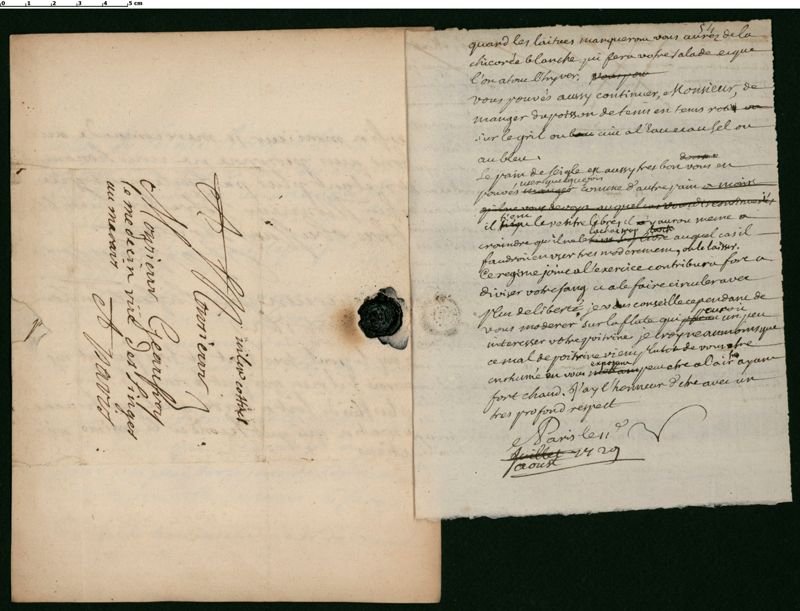 0 1 2 3 4 5 cm
54
quand les laitues manqueront vous aurés de la
chicorée blanche qui fera votre salade
l'hyver.
vous pouvés aussy continuer, Monsieur, de
manger du poisson de tems en tems roti
sur le gril ou cuit a l'eau et au sel ou
au bleu.
Le pain de seigle est aussy tres bon vous en
pouvés user quelquefois comme d'autre pain a moins
il tiens le ventre libre il y auroit meme a
craindre qu'il ne le auquel cas il
faudroit en user tres moderement, ou le laisser.
Ce regime joint a l'exercice contribura fort a
diviser votre sang et a le faire circuler avec
plus de liberté, je vous conseille cependant de
vous moderer sur la flute qui pouroit un peu
interesser votre poitrine je
ce mal de poitrine vient plutot de vous etre
enrhumé en vous exposant peut etre a l'air ayant
fort chaud. J'ay l'honneur d'etre avec un
tres profond respect
Paris le 11e
Juillet 1729
aoust
A Monsieur
Monsieur Geauffroy
le medecin rue des singes
au marais
A Paris